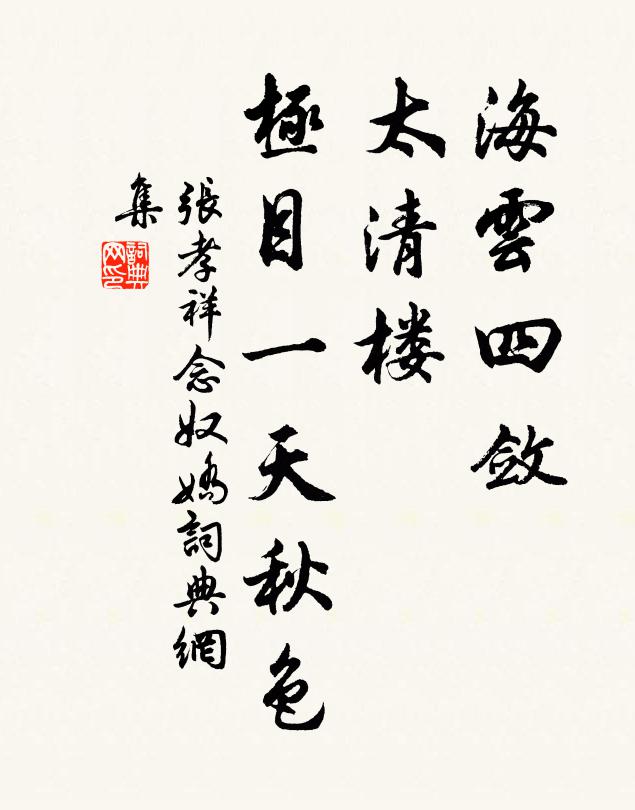 海雲四斂
太清楼
極目一天秋色
張孝祥念奴嬌詞典網
集
詞典
网印